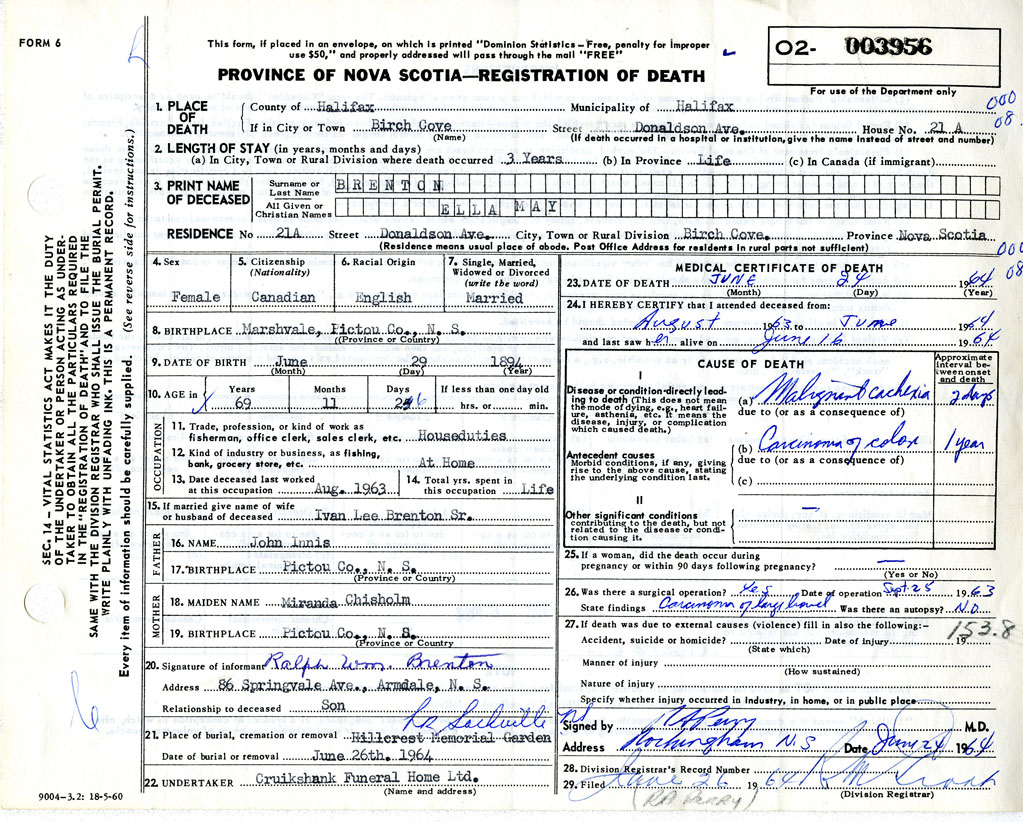 FORM 6
This form, if placed in an envelope, on which is printed "Dominion Statistics – Free, penalty for improper
use $50," and properly addressed will pass through the mail "FREE"
PROVINCE OF NOVA SCOTIA—REGISTRATION OF DEATH
O2- 003956
For use of the Department only
000
08.
1. PLACE OF DEATH County of Halifax Municipality of Halifax
If in City or Town Birch Cove Street Donaldson Ave. House No. 21 A
(Name) (If death occurred in a hospital or institution, give the name instead of street and number)
2. LENGTH OF STAY (in years, months and days)
(a) In City, Town or Rural Division where death occurred 3 Years (b) In Province Life (c) In Canada (if immigrant)
3. PRINT NAME OF DECEASED Surname or Last Name BRENTON
All Given or Christian Names ELLA MAY
RESIDENCE No 21A Street Donaldson Ave. City, Town or Rural Division Birch Cove. Province Nova Scotia
(Residence means usual place of abode. Post Office Address for residents in rural parts not sufficient)
000
08
SEC. 14 – VITAL STATISTICS ACT MAKES IT THE DUTY
OF THE UNDERTAKER OR PERSON ACTING AS UNDER-
TAKER TO OBTAIN ALL THE PARTICULARS REQUIRED
IN THE "REGISTRATION OF DEATH" AND TO FILE THE
SAME WITH THE DIVISION REGISTRAR WHO SHALL ISSUE THE BURIAL PERMIT.
WRITE PLAINLY WITH UNFADING INK - THIS IS A PERMANENT RECORD.
Every item of information should be carefully supplied. (See reverse side for instructions.)
4. Sex
Female
5. Citizenship
(Nationality)
Canadian
6. Racial Origin
English
7. Single, Married,
Widowed or Divorced
(write the word)
Married
8. BIRTHPLACE Marshvale, Pictou Co., N. S.
(Province or Country)
9. DATE OF BIRTH June 29 1894
(Month) (Day) (Year)
10. AGE in Years Months Days If less than one day old
69 11 26 hrs. or min.
OCCUPATION
11. Trade, profession, or kind of work as
fisherman, office clerk, sales clerk, etc. Houseduties
12. Kind of industry or business, as fishing,
bank, grocery store, etc. At Home
13. Date deceased last worked
at this occupation Aug. 1963
14. Total yrs. spent in
this occupation Life
15. If married give name of wife
or husband of deceased Ivan Lee Brenton Sr.
FATHER
16. NAME John Innis
17. BIRTHPLACE Pictou Co., N. S.
(Province or Country)
MOTHER
18. MAIDEN NAME Miranda Chisholm
19. BIRTHPLACE Pictou Co., N. S.
(Province or Country
20. Signature of informant Ralph Wm. Brenton
Address 86 Springvale Ave., Armdale, N. S.
Relationship to deceased Son
Lr Sackville
21. Place of burial, cremation or removal Hillcrest Memorial Garden
Date of burial or removal June 26th. 1964
22. UNDERTAKER Cruikshank Funeral Home Ltd.
(Name and address)
9004-3.2: 18-5-60
MEDICAL CERTIFICATE OF DEATH
23. DATE OF DEATH JUNE 24 1964
(Month) (Day) (Year)
24. I HEREBY CERTIFY that I attended deceased from:
August 1963 to June 1964
and last saw her alive on June 16 1964
CAUSE OF DEATH
Approximate
interval be-
tween onset
and death
I
Disease or condition directly lead-
ing to death (This does not mean
the mode of dying, e.g., heart fail-
ure, asthenia, etc. It means the
disease, injury, or complication
which caused death.)
(a) Malignant cachexia 2 days
due to (or as a consequence of)
(b) Carcinoma of colon 1 year
due to (or as a consequence of)
(c)
Antecedent causes
Morbid conditions, if any, giving
rise to the above cause, stating
the underlying condition last.
II
Other significant conditions
contributing to the death, but not
related to the disease or condi-
tion causing it.
—
25. If a woman, did the death occur during
pregnancy or within 90 days following pregnancy? —
(Yes or No)
26. Was there a surgical operation? Yes Date of operation Sept. 25 1963
State findings Carcinoma of large bowel Was there an autopsy? NO
27. If death was due to external causes (violence) fill in also the following:–
153.8
Accident, suicide or homicide? Date of injury 19
(State which)
Manner of injury
(How sustained)
Nature of injury
Specify whether injury occurred in industry, in home, or in public place
Signed by RA Perry M.D.
Address Rockingham N S Date June 24 1964
28. Division Registrar's Record Number
29. Filed June 26 1964
(RA Perry) (Division Registrar)